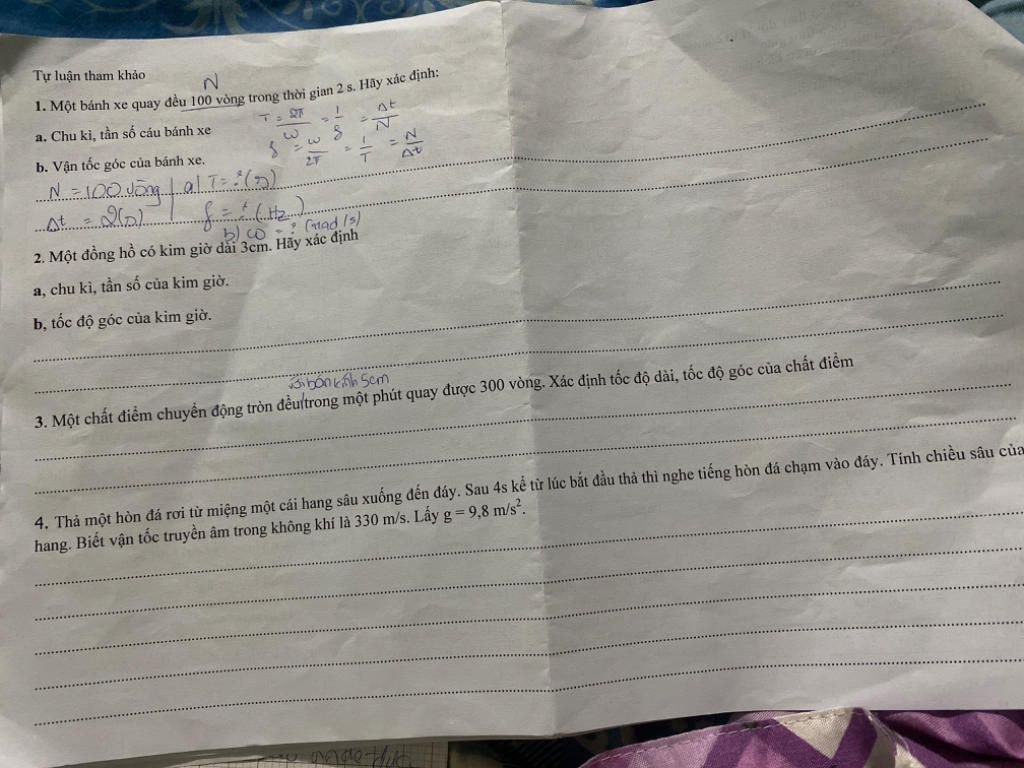 Tự luận tham khảo
N
1. Một bánh xe quay đều 100 vòng trong thời gian 2 s. Hãy xác định:
a. Chu kì, tần số cáu bánh xe
T = 2π/ω = 1/f = Δt/N
b. Vận tốc góc của bánh xe.
f = ω/2π = 1/T = N/Δt
N = 100 vòng | a) T = ? (s)
Δt = 2(s) | f = ? (Hz)
b) ω = ? (rad/s)
2. Một đồng hồ có kim giờ dài 3cm. Hãy xác định
a, chu kì, tần số của kim giờ.
b, tốc độ góc của kim giờ.
với bán kính 5cm
3. Một chất điểm chuyển động tròn đều trong một phút quay được 300 vòng. Xác định tốc độ dài, tốc độ góc của chất điểm
4. Thả một hòn đá rơi từ miệng một cái hang sâu xuống đến đáy. Sau 4s kể từ lúc bắt đầu thả thì nghe tiếng hòn đá chạm vào đáy. Tính chiều sâu của
hang. Biết vận tốc truyền âm trong không khí là 330 m/s. Lấy g = 9,8 m/s².